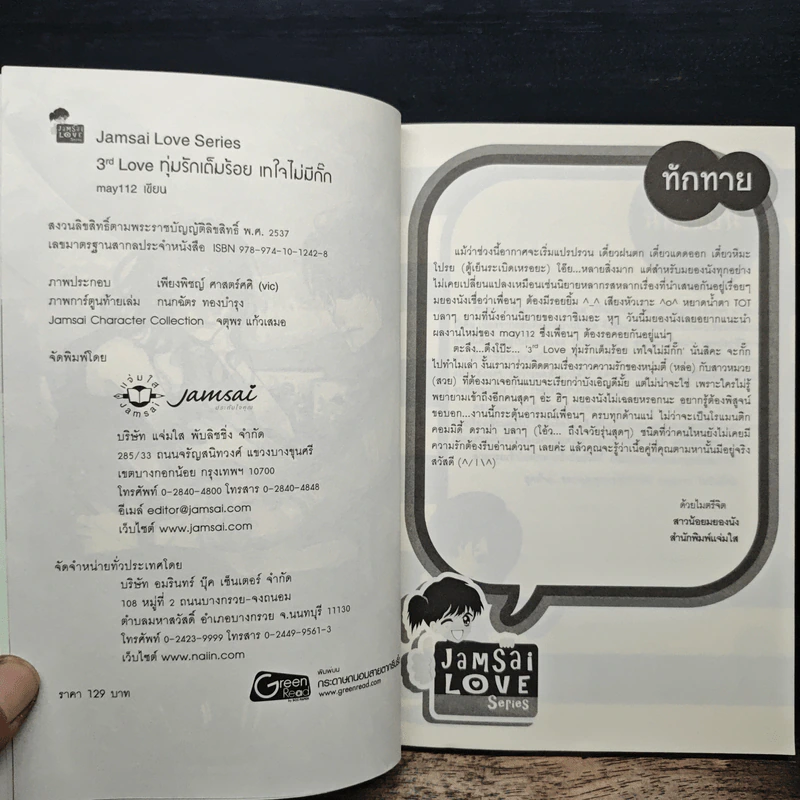 JAMSAI
LOVE
Series
Jamsai Love Series
3rd Love ทุ่มรักเต็มร้อย เทใจไม่มีกั๊ก
may112 เขียน
สงวนลิขสิทธิ์ตามพระราชบัญญัติลิขสิทธิ์ พ.ศ. 2537
เลขมาตรฐานสากลประจำหนังสือ ISBN 978-974-10-1242-8
ภาพประกอบ เพียงพิชญ์ ศาสตร์ศศิ (vic)
ภาพการ์ตูนท้ายเล่ม กนกฉัตร ทองบำรุง
Jamsai Character Collection จตุพร แก้วเสมอ
จัดพิมพ์โดย
แจ่มใส
Jamsai
Jamsai
บริษัท แจ่มใส พับลิชชิ่ง จำกัด
285/33 ถนนจรัญสนิทวงศ์ แขวงบางขุนศรี
เขตบางกอกน้อย กรุงเทพฯ 10700
โทรศัพท์ 0-2840-4800 โทรสาร 0-2840-4848
อีเมล์ editor@jamsai.com
เว็บไซต์ www.jamsai.com
จัดจำหน่ายทั่วประเทศโดย
บริษัท อมรินทร์ บุ๊ค เซ็นเตอร์ จำกัด
108 หมู่ที่ 2 ถนนบางกรวย-จงถนอม
ตำบลมหาสวัสดิ์ อำเภอบางกรวย จ.นนทบุรี 11130
โทรศัพท์ 0-2423-9999 โทรสาร 0-2449-9561-3
เว็บไซต์ www.naiin.com
Green
Read
พิมพ์บน
กระดาษถนอมสายตากรีนรี้ด
www.greenread.com
ราคา 129 บาท
ทักทาย
แม้ว่าช่วงนี้อากาศจะเริ่มแปรปรวน เดี๋ยวฝนตก เดี๋ยวแดดออก เดี๋ยวหิมะ
โปรย (ตู้เย็นระเบิดเหรอยะ) โอ๊ย...หลายสิ่งมาก แต่สำหรับมยองนังทุกอย่าง
ไม่เคยเปลี่ยนแปลงเหมือนเช่นนิยายหลากรสหลากเรื่องที่นำเสนอกันอยู่เรื่อยๆ
มยองนังเชื่อว่าเพื่อนๆ ต้องมีรอยยิ้ม ^_^ เสียงหัวเราะ ^o^ หยาดน้ำตา TOT
บลาๆ ยามที่นั่งอ่านนิยายของเราชิเมอะ หุๆ วันนี้มยองนังเลยอยากแนะนำ
ผลงานใหม่ของ may112 ซึ่งเพื่อนๆ ต้องรอคอยกันอยู่แน่ๆ
ตะลึง...ตึงโป๊ะ... '3rd Love ทุ่มรักเต็มร้อย เทใจไม่มีกั๊ก' นั่นสิคะ จะกั๊ก
ไปทำไมเล่า งั้นเรามาร่วมติดตามเรื่องราวความรักของหนุ่มตี๋ (หล่อ) กับสาวหมวย
(สวย) ที่ต้องมาเจอกันแบบจะเรียกว่าบังเอิญดีมั้ย แต่ไม่น่าจะใช่ เพราะใครไม่รู้
พยายามเข้าถึงอีกคนสุดๆ อ่ะ ฮิๆ มยองนังไม่เฉลยหรอกนะ อยากรู้ต้องพิสูจน์
ขอบอก...งานนี้กระตุ้นอารมณ์เพื่อนๆ ครบทุกด้านแน่ ไม่ว่าจะเป็นโรแมนติก
คอมมิดี้ ดราม่า บลาๆ (โอ้ว... ถึงใจวัยรุ่นสุดๆ) ชนิดที่ว่าคนไหนยังไม่เคยมี
ความรักต้องรีบอ่านด่วนๆ เลยค่ะ แล้วคุณจะรู้ว่าเนื้อคู่ที่คุณตามหานั้นมีอยู่จริง
สวัสดี (^/|\^)
ด้วยไมตรีจิต
สาวน้อยมยองนัง
สำนักพิมพ์แจ่มใส
JAMSAI
LOVE
Series